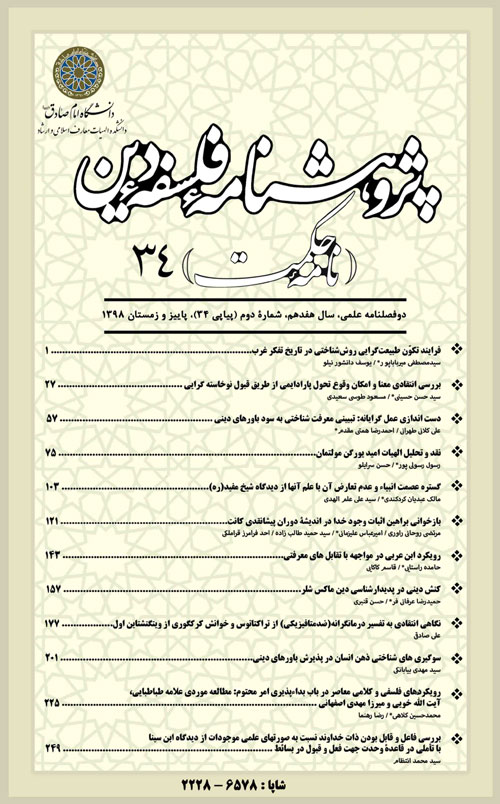 دانشگاه امام صادق
دانشکده الهیات معارف اسلامی و ارشاد
پژوهشنامۀ فلسفۀ دین
(نامۀ حکمت) ۳۴
دوفصلنامه علمی، سال هفدهم، شمارۀ دوم (پیاپی ۳۴)، پاییز و زمستان ۱۳۹۸
فرایند تکوّن طبیعت‌گرایی روش‌شناختی در تاریخ تفکر غرب ۱
سیدمصطفی میرباباپو ر* / یوسف دانشور نیلو
بررسی انتقادی معنا و امکان وقوع تحول پارادایمی از طریق قبول نوخاسته گرایی ۲۷
سید حسن حسینی* / مسعود طوسی سعیدی
دست اندازی عمل گرایانه: تبیینی معرفت شناختی به سود باورهای دینی ۵۷
علی کلانی طهرانی / احمدرضا همتی مقدم*
نقد و تحلیل الهیات امید یورگن مولتمان ۷۵
رسول رسولی پور* / حسن سرایلو
گستره عصمت انبیاء و عدم تعارض آن با علم آنها از دیدگاه شیخ مفید(ره) ۱۰۳
مالک عبدیان کردکندی* / سید علی علم الهدی
بازخوانی براهین اثبات وجود خدا در اندیشۀ دوران پیشانقدی کانت ۱۲۱
مرتضی روحانی راوری / امیرعباس علیزمان* / سید حمید طالب زاده / احد فرامرز قراملکی
رویکرد ابن عربی در مواجهه با تقابل های معرفتی ۱۴۳
حامده راستایی* / قاسم کاکایی
کنش دینی در پدیدارشناسی دین ماکس شلر ۱۵۷
حمیدرضا عرفانی فر* / حسن قنبری
نگاهی انتقادی به تفسیر درمانگرانه(ضدمتافیزیکی) از تراکتاتوس و خوانش کرگگوری از ویتگنشتاین اول ۱۷۷
علی صادقی
سوگیری های شناختی ذهن انسان در پذیرش باورهای دینی ۲۰۱
سید مهدی بیابانکی
رویکردهای فلسفی و کلامی معاصر در باب بداءپذیری امر محتوم: مطالعه موردی علامه طباطبایی،
آیت الله خویی و میرزا مهدی اصفهانی ۲۲۵
محمدحسین کلاهی* / رضا رهنما
بررسی فاعل و قابل بودن ذات خداوند نسبت به صورتهای علمی موجودات از دیدگاه ابن سینا
با تأملی در قاعدۀ وحدت جهت فعل و قبول در بسائط ۲۴۹
سید محمد انتظام
شاپا : ۶۵۷۸ – ۲۲۲۸